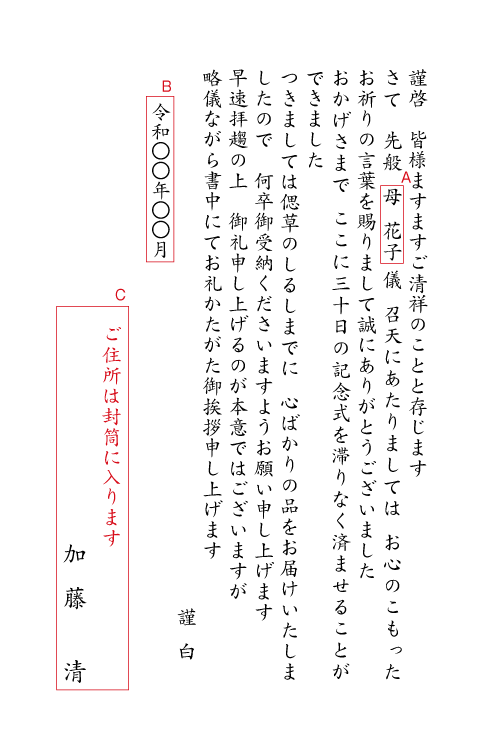 謹啓　皆様ますますご清祥のことと存じます
さて　先般　母　花子　儀　召天にあたりましては　お心のこもった
A
お祈りの言葉を賜りまして誠にありがとうございました
おかげさまで　ここに三十日の記念式を滞りなく済ませることが
できました
つきましては偲草のしるしまでに　心ばかりの品をお届けいたしま
したので　何卒御受納くださいますようお願い申し上げます
早速拝趨の上　御礼申し上げるのが本意ではございますが
略儀ながら書中にてお礼かたがた御挨拶申し上げます
謹白
B
令和〇〇年〇〇月
C
ご住所は封筒に入ります
加藤　清